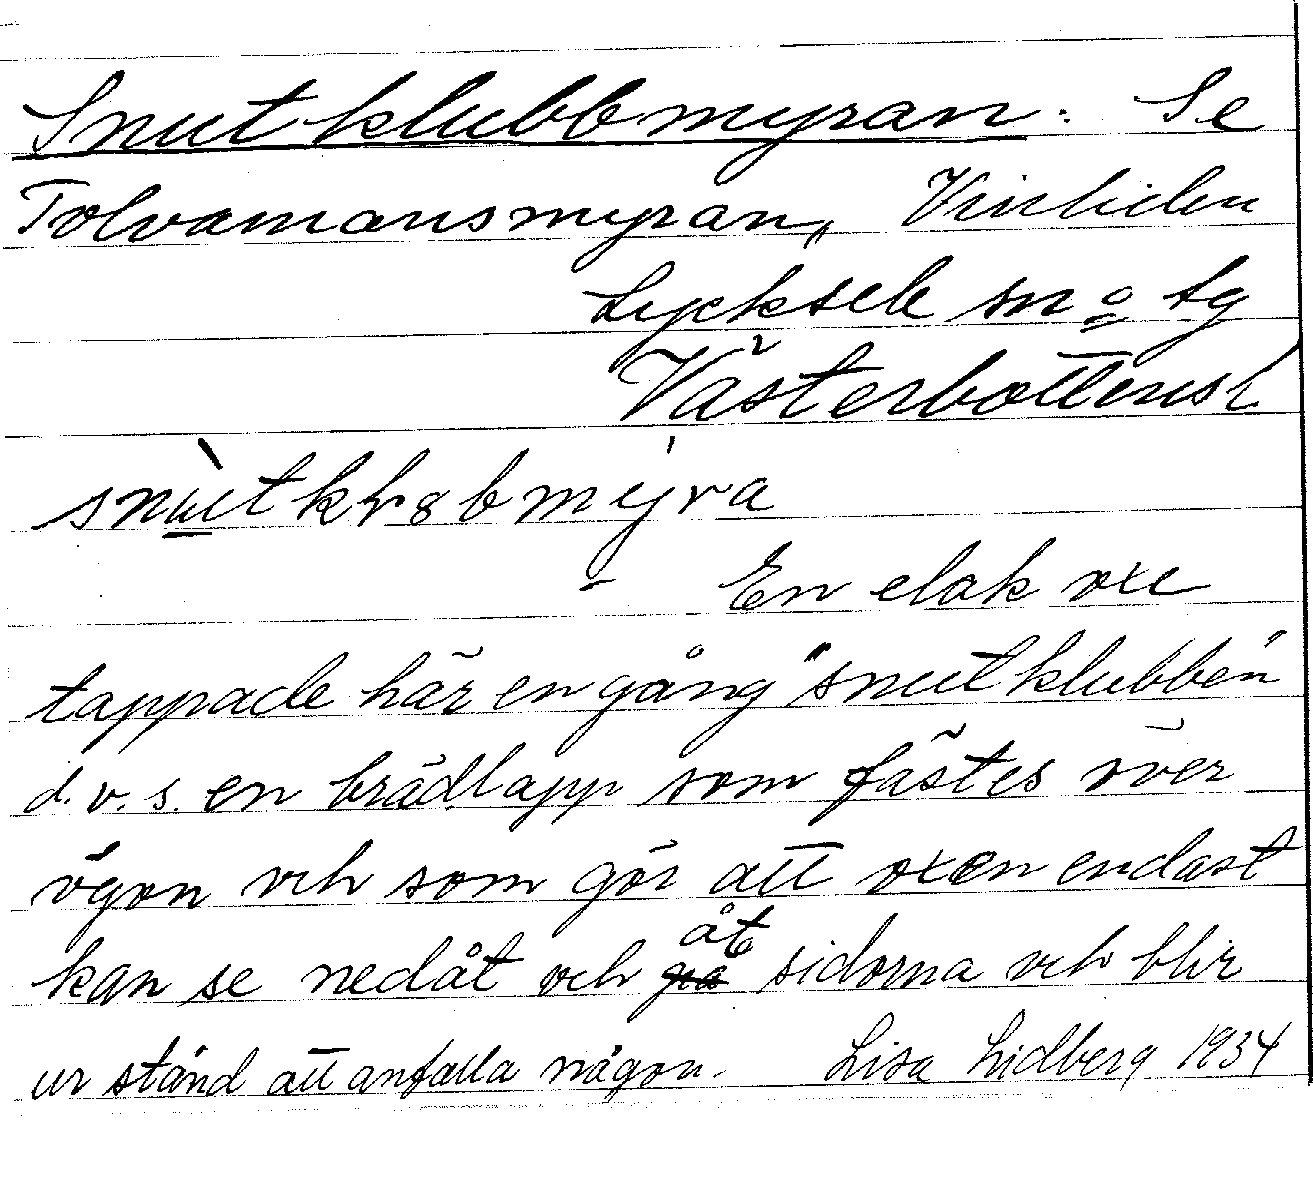 Snutklubbmyran: Se
Tolvamansmyran, Vinliden
Lycksele sn o tg
Västerbottensl
tappade här en gång "snutklubben"
En elak oxe
d.v.s. en brädlapp som fästes över
ögon och som gör att oxen endast
kan se nedåt och åt sidorna och blir
ur stånd att anfalla någon. Lisa Lidberg 1934